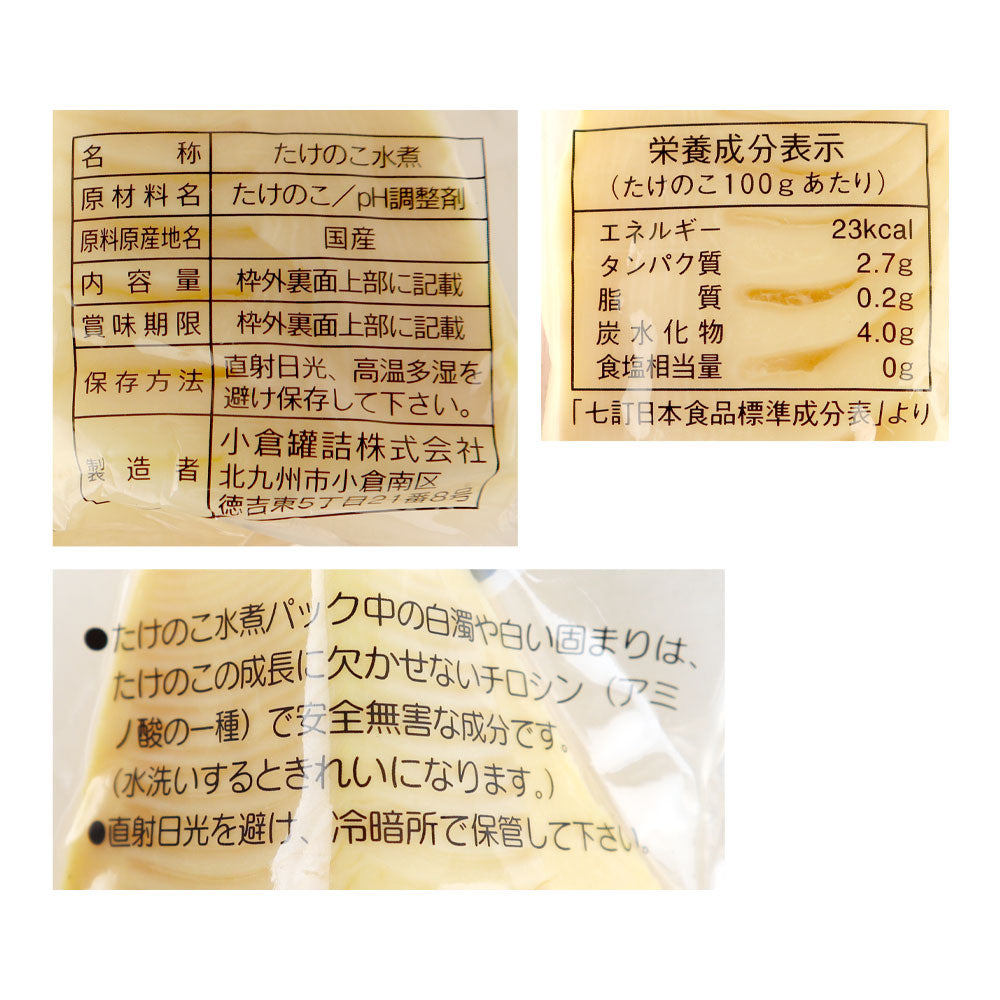 名称 たけのこ水煮
原材料名 たけのこ/pH調整剤
原料原産地名 国産
内容量 枠外裏面上部に記載
賞味期限 枠外裏面上部に記載
保存方法 直射日光、高温多湿を
避け保存して下さい。
製造者 小倉罐詰株式会社
北九州市小倉南区
徳吉東5丁目21番8号
栄養成分表示
(たけのこ100gあたり)
エネルギー 23kcal
タンパク質 2.7g
脂質 0.2g
炭水化物 4.0g
食塩相当量 0g
「七訂日本食品標準成分表」より
●たけのこ水煮パック中の白濁や白い固まりは、
たけのこの成長に欠かせないチロシン(アミ
ノ酸の一種)で安全無害な成分です。
(水洗いするときれいになります。)
●直射日光を避け、冷暗所で保管して下さい。